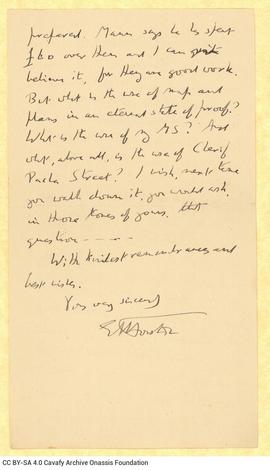 prepared. Mann says he has spent
£60 over them and I can quite
believe it, for they are good work.
But what is the use of maps and
plans in an eternal state of proof?
What is the use of my MS? And
what, above all, is the use of Cherif
Pacha Street? I wish, next time
you walk down it, you would ask,
in those tones of yours, that
question — — — —
With kindest remembrances and
best wishes.
Yrs very sincerely
EMForster
CC BY-SA 4.0 Cavafy Archive Onassis Foundation